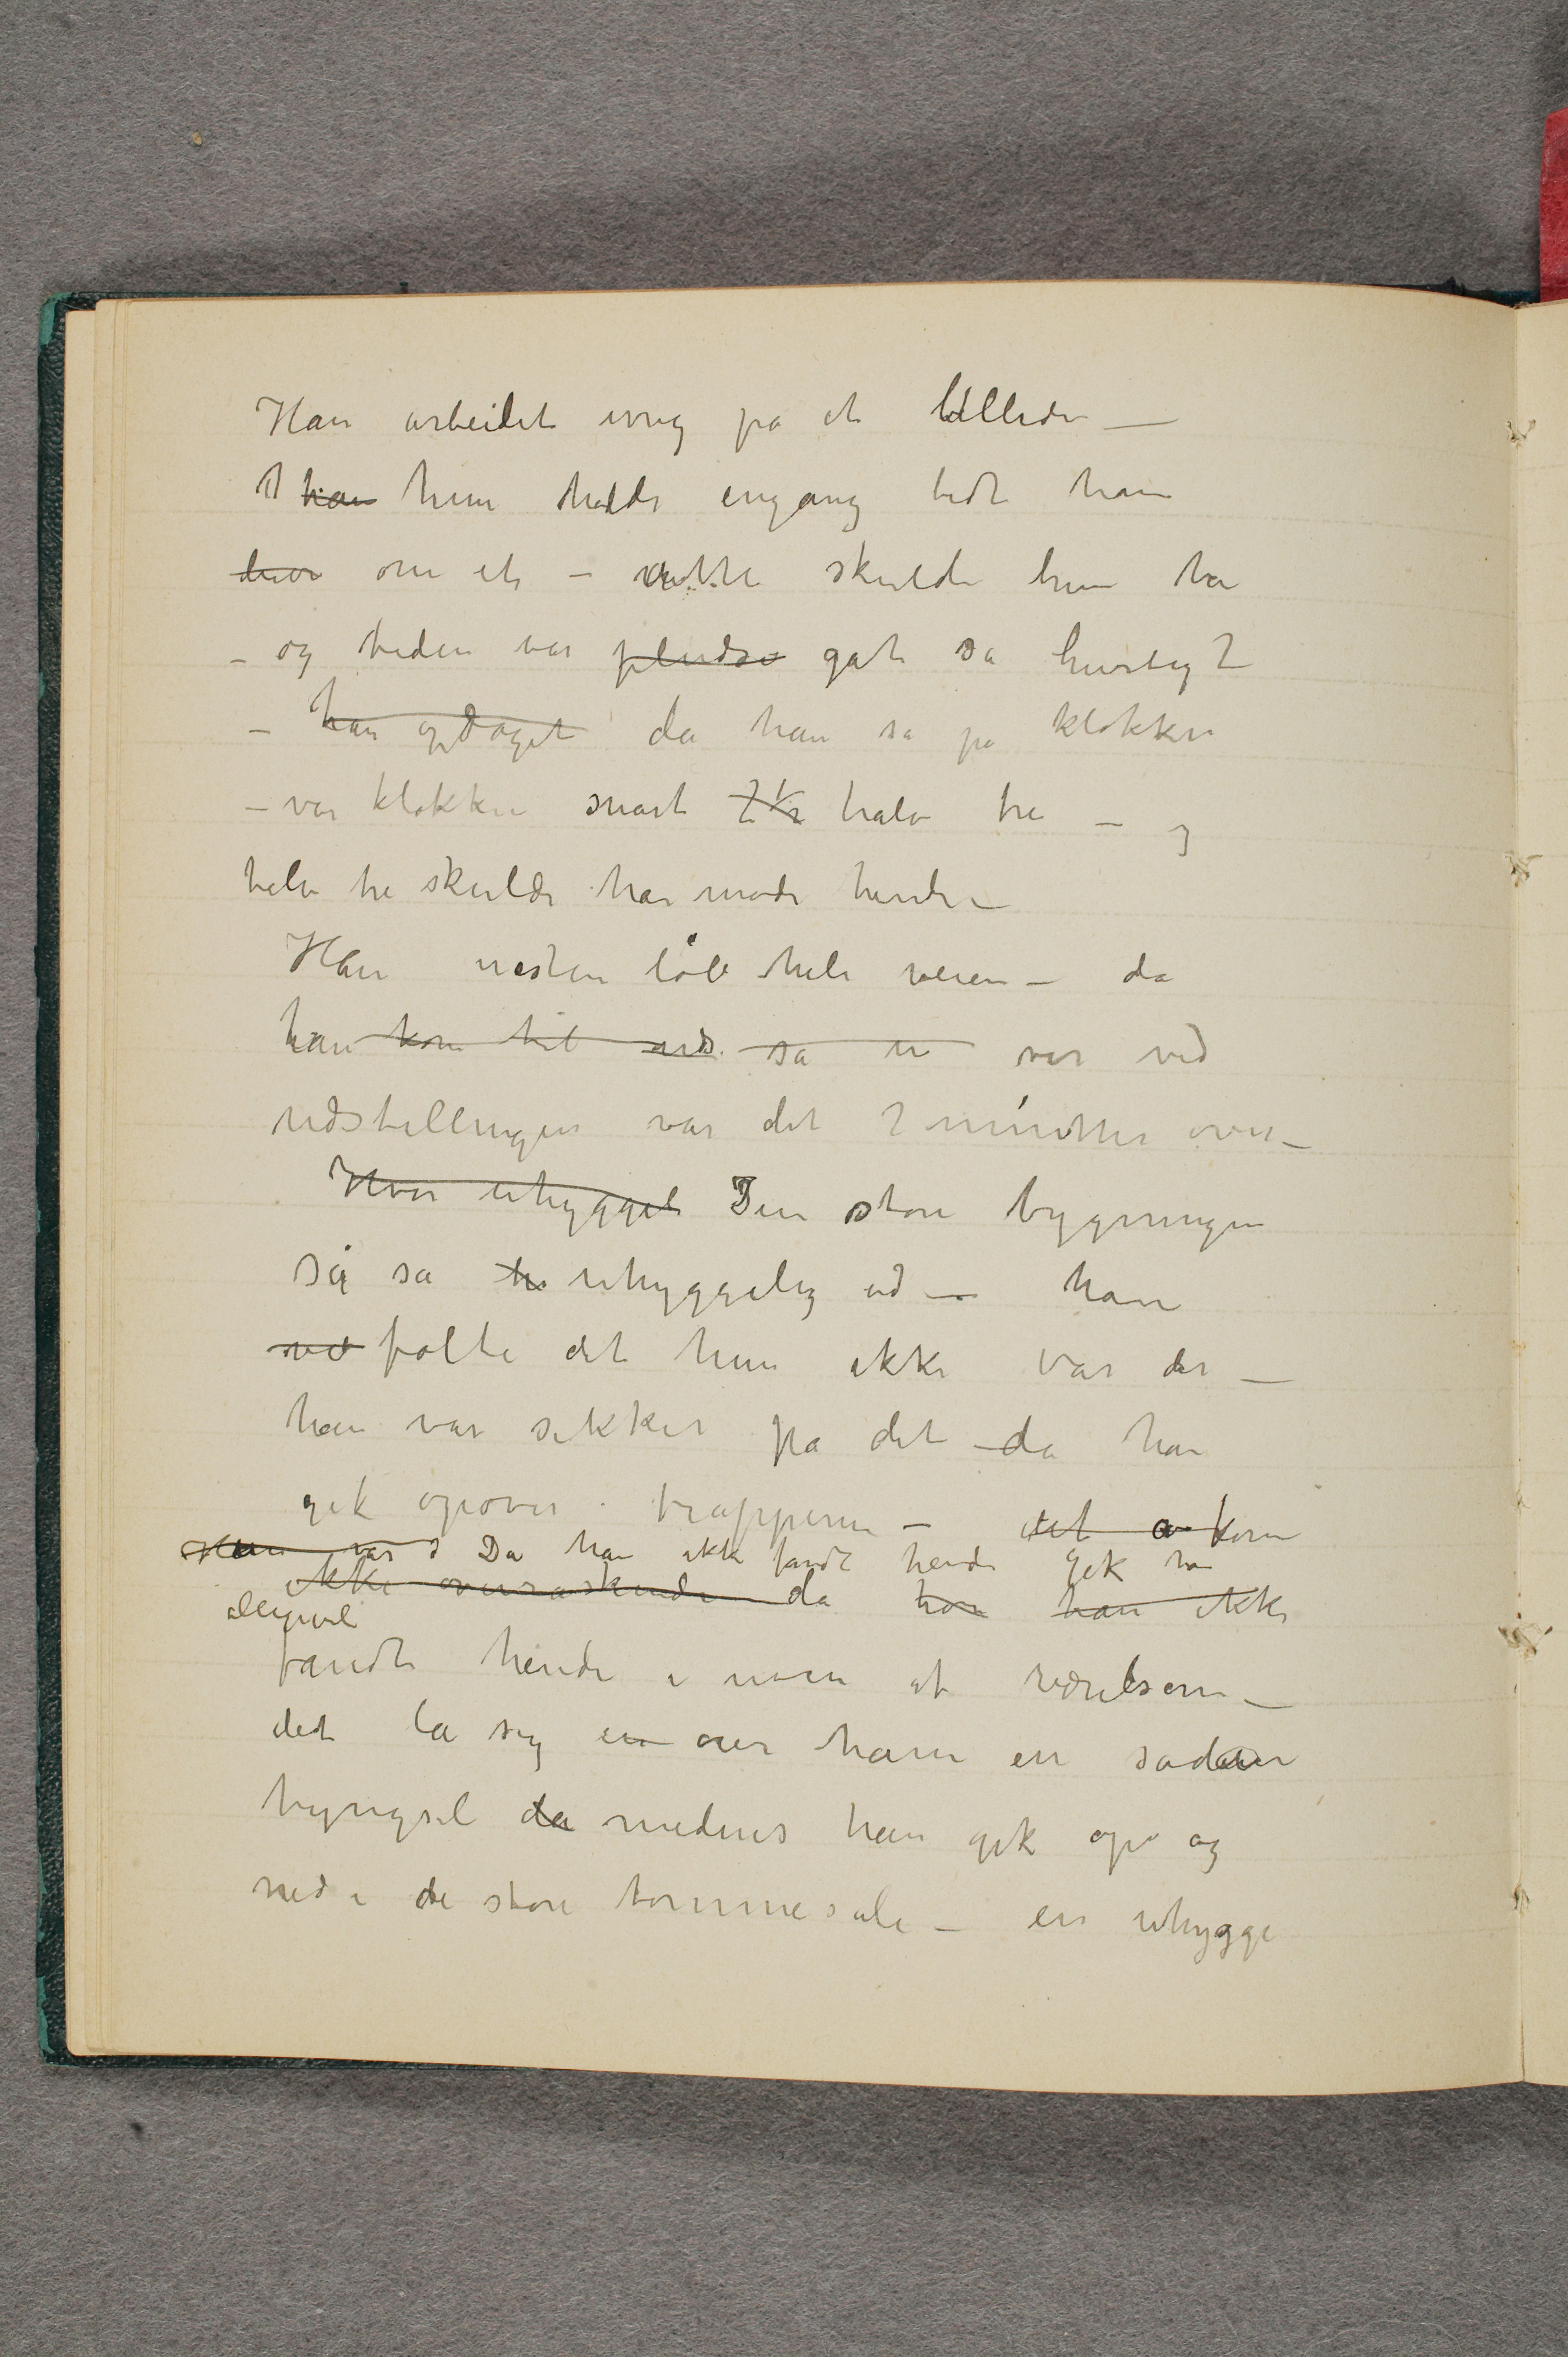 Han arbeidet ivrig på et billede —
han hun hadde engang bedt ham
om et – dette skulde hun ha
– og tiden var pludse gåt så hurtigt
– han opdaget da han så på klokken
– var klokken snart 2 ½ halv tre – og
halv tre skulde han møde hende –
Han næsten løb hele veien – da
han kom til uds så u var ved
udstillingen var det 2 minutter over –
Hvor uhyggel Den store bygningen
så så uhyggelig ud — han
ved følte det hun ikke var der —
han var sikker på det – da han
gik opover trapperne – det kom
Han var d Da han ikke fandt hende gik han
ikke overraskende da han han ikke
alligevel
fandt hende i noen af værelserne –
det la sig en over ham en sådan
tyngsel da medens han gik op og
ned i de store tomme sale – en uhygge